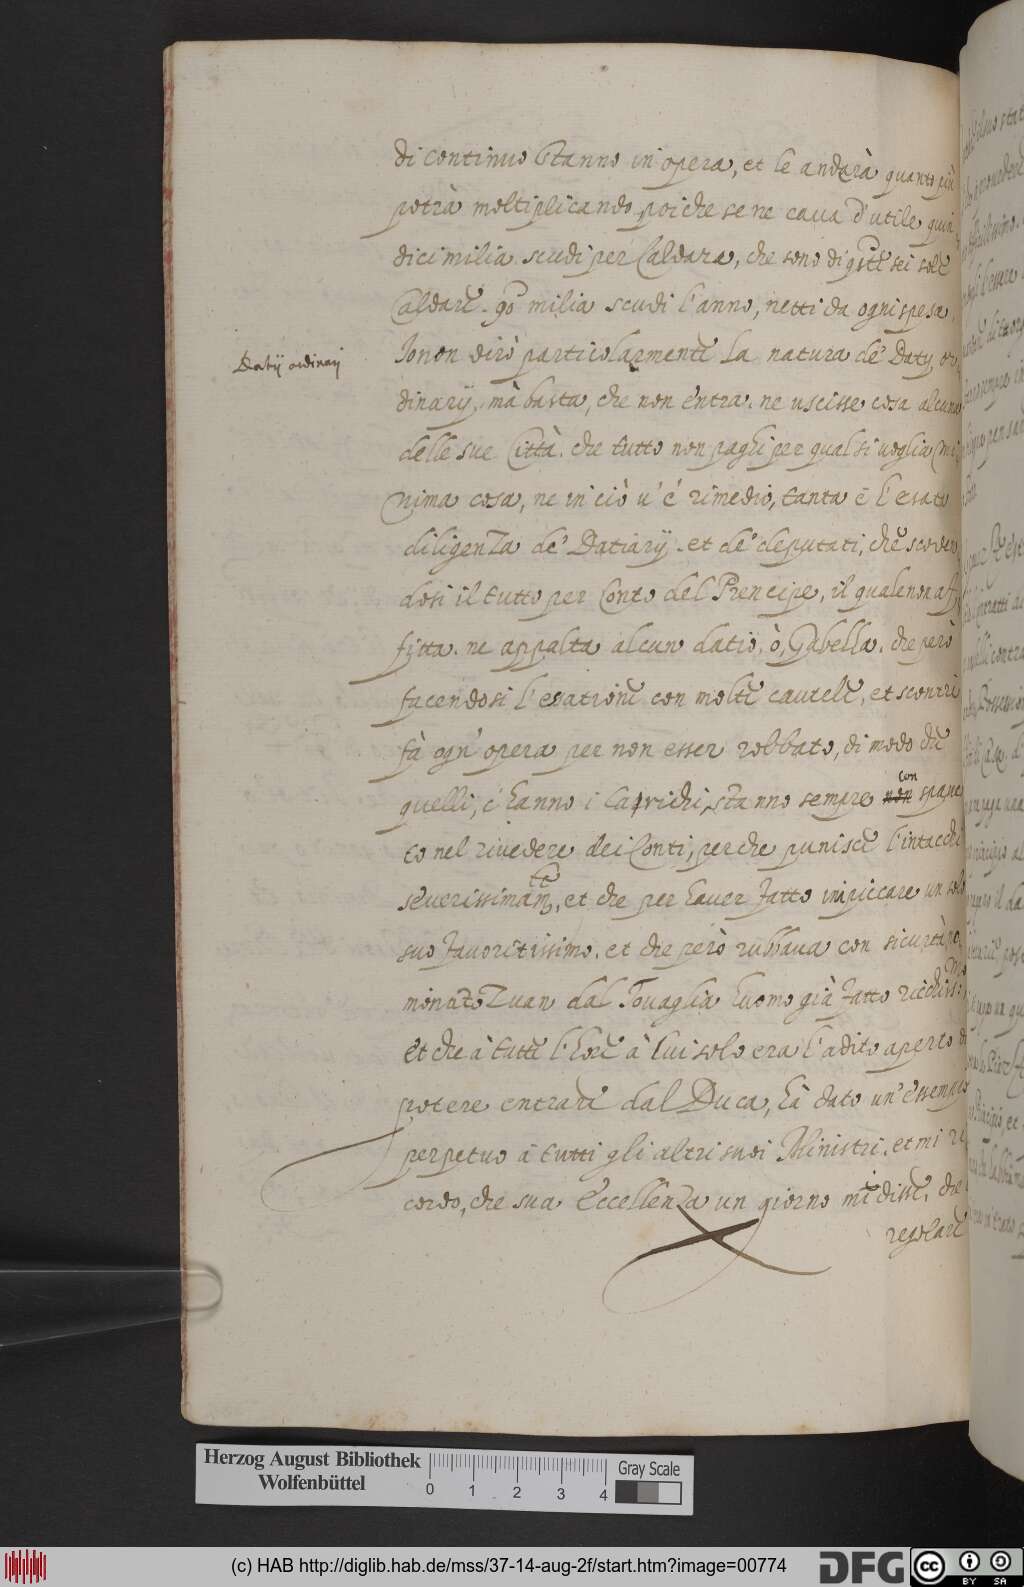 di continuo stanno in opera, et le andarà quanto più
potrà moltiplicando, poiche se ne caua d'utile quin
dici milia scudi per Caldara, che sono di qste sei sole
Caldare 90 milia scudi l'anno, netti da ogni spesa.
Daty ordinarij
Io non dirò particolarmente la natura de' Daty or
dinarij, mà basta, che non entra, ne uscisse cosa alcuna
delle sue Città, che tutto non paghi per qual si uoglia mi
nima cosa, ne in ciò u' é rimedio, tanta è l'esata
diligenza de' Datiarij, et de' deputati, che scoden
dosi il tutto per Conto del Prencipe, il quale non af
fitta, ne appalta alcun datio, ò, Gabella, che però
facendosi l'esatione con molte cautele, et scontri
fà ogn' opera per non esser robbato, di modo che
quelli, c' hanno i Carichi, stanno sempre con spauen
to nel riuedere dei Conti, perche punisce l'intacchi
seuerissimamte, et che per hauer fatto impiccare un solo
suo fauoritissimo, et che però rubbaua con sicurtà, no
minato Zuan dal Touaglia huomo già fatto ricchissmo
et che à tutte l'hore à lui solo era l'adito aperto di
potere entrare dal Duca, hà dato un' essempio
perpetuo à tutti gli altri suoi Ministri, et mi ri
cordo, che sua Eccellenza un giorno mi disse, che
regolare
Herzog August Bibliothek
Wolfenbüttel
0 1 2 3 4
Gray Scale
(c) HAB http://diglib.hab.de/mss/37-14-aug-2f/start.htm?image=00774
DFG
cc BY SA